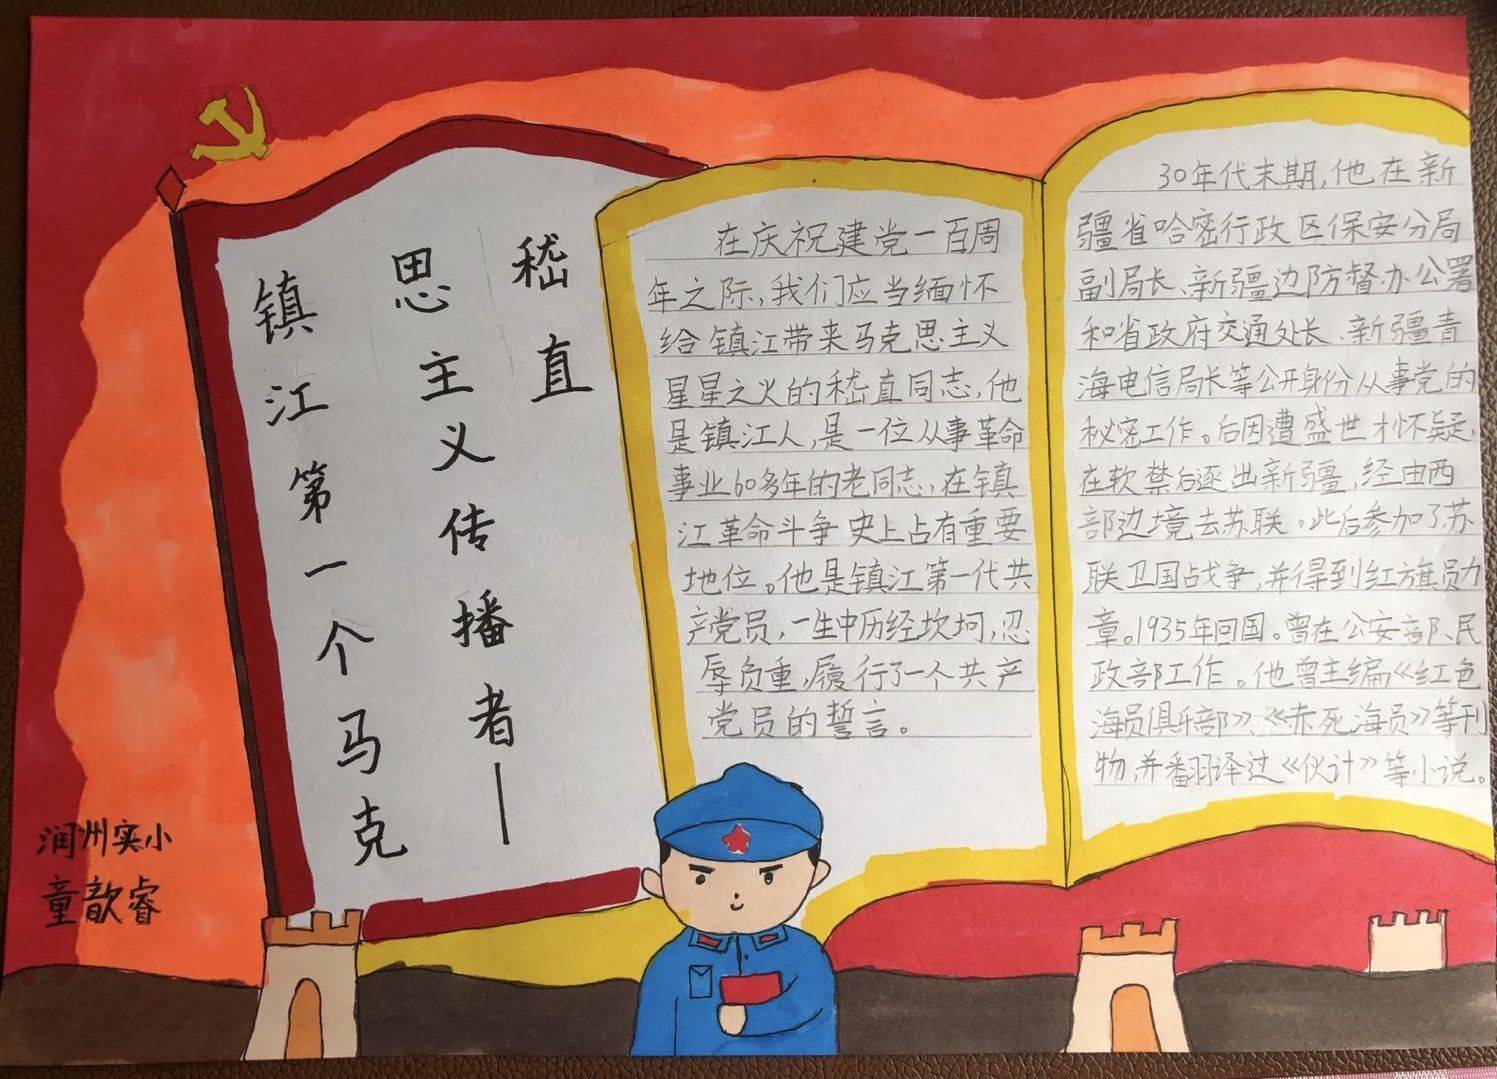 镇江第一个马克
思主义传播者—
嵇直
在庆祝建党一百周
年之际,我们应当缅怀
给镇江带来马克思主义
星星之火的嵇直同志,他
是镇江人,是一位从事革命
事业60多年的老同志,在镇
江革命斗争史上占有重要
地位。他是镇江第一代共
产党员,一生中历经坎坷,忍
辱负重,履行了一个共产
党员的誓言。
30年代末期,他在新
疆省哈密行政区保安分局
副局长、新疆边防督办公署
和省政府交通处长、新疆青
海电信局长等公开身份从事党的
秘密工作。后因遭盛世才怀疑,
在软禁后逐出新疆,经由西
部边境去苏联。此后参加了苏
联卫国战争,并得到红旗员力
章。1935年回国。曾在公安部、民
政部工作。他曾主编《红色
海员俱乐部》、《赤死海员》等刊
物,并翻译过《伙计》等小说。
润州实小
童歆睿